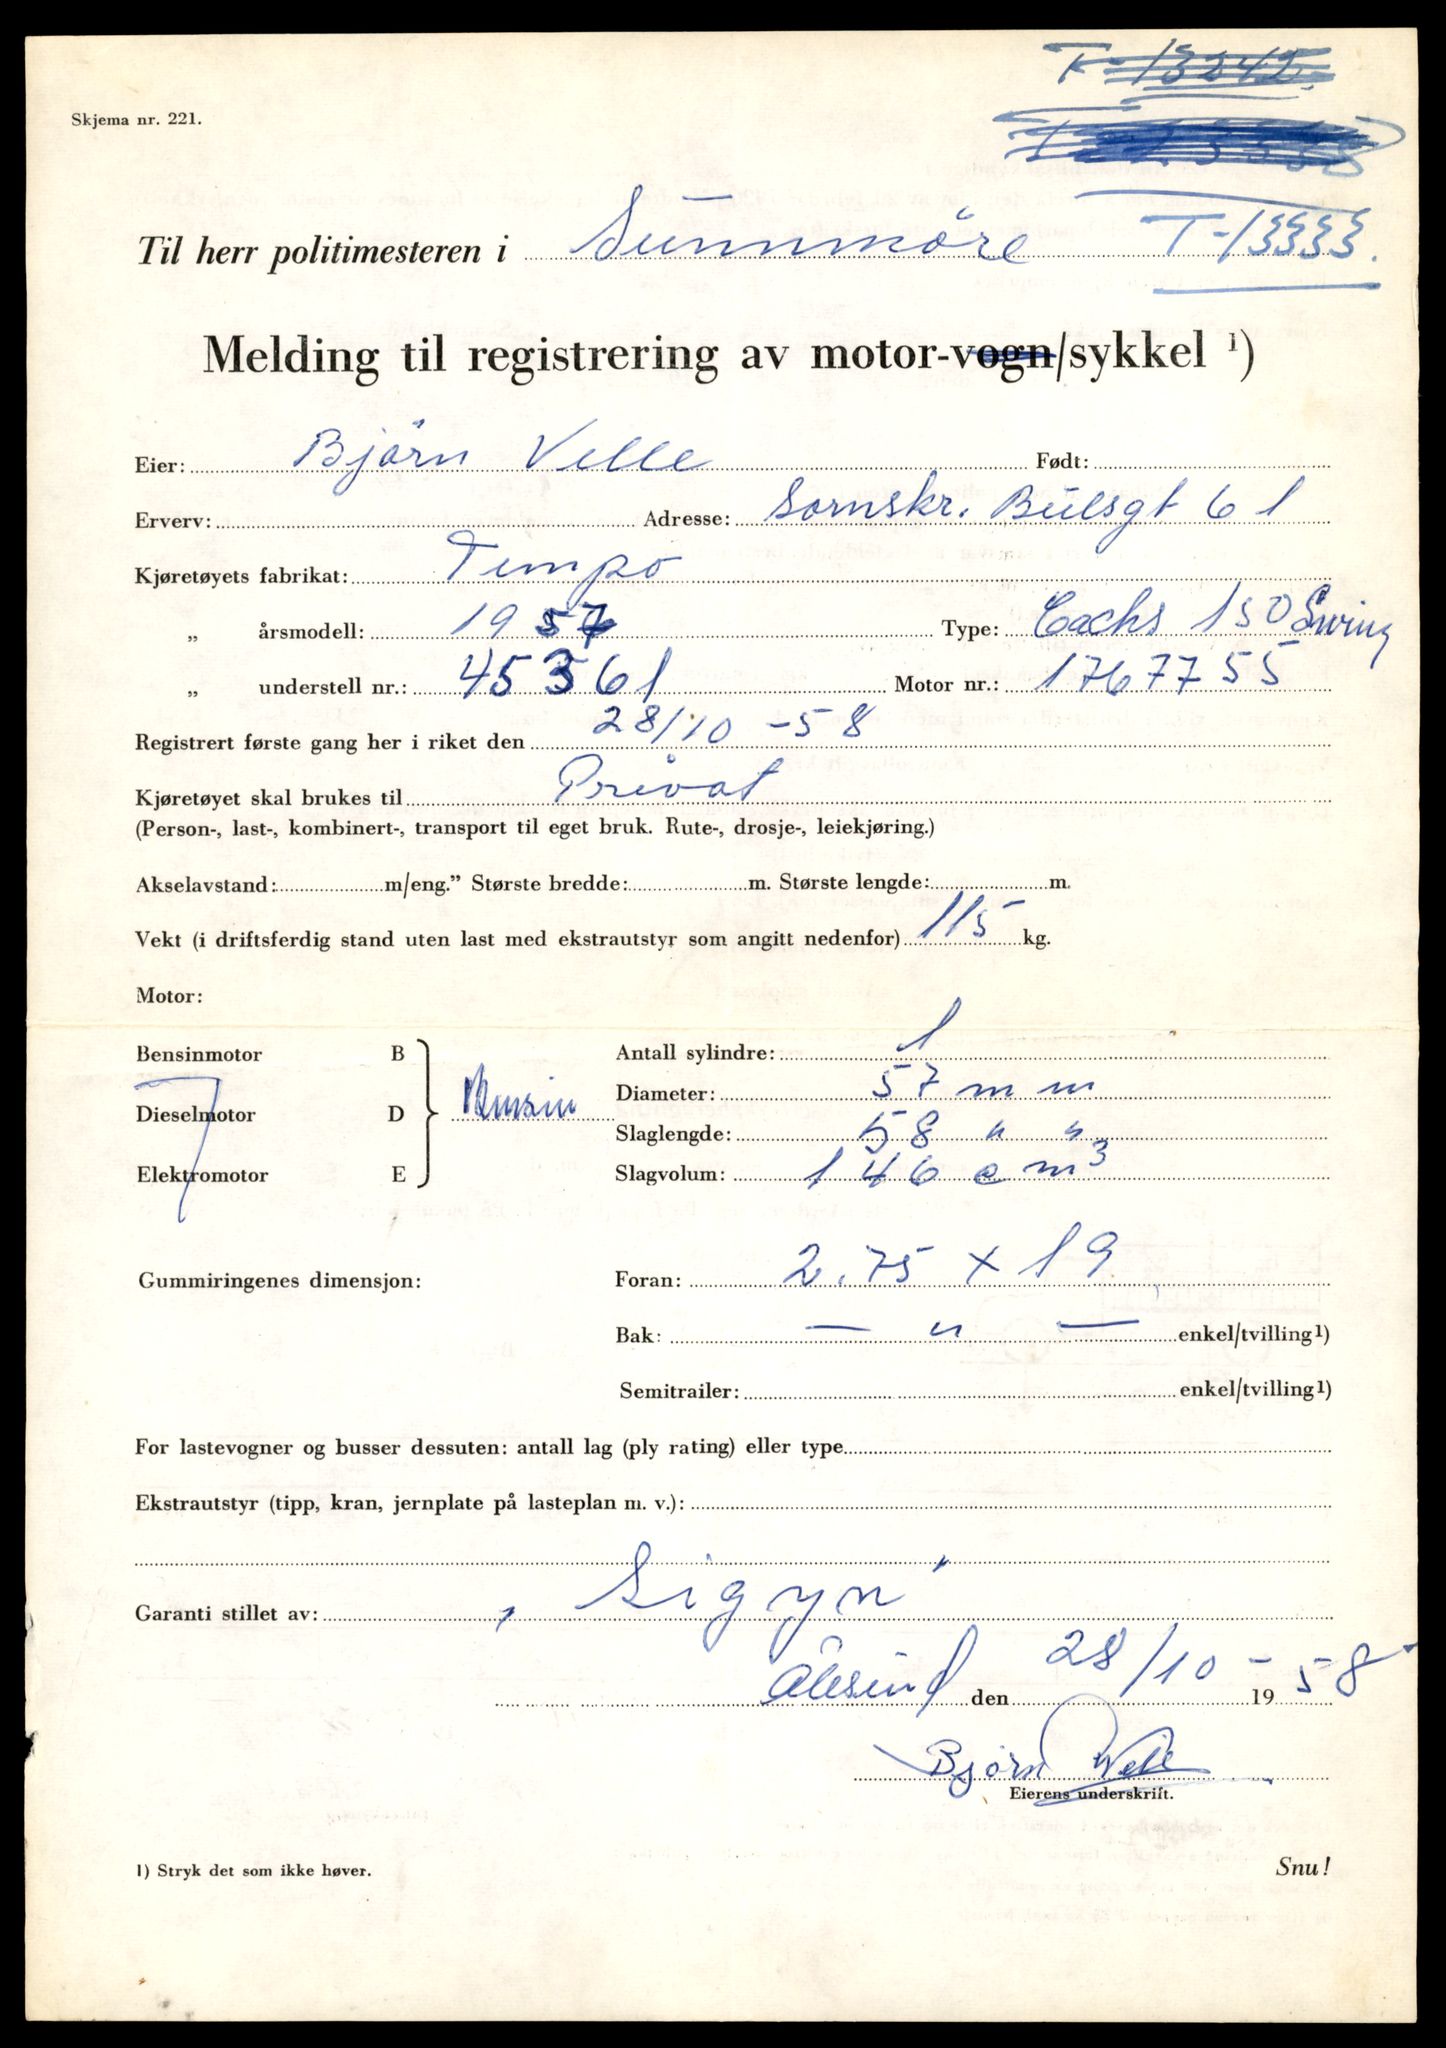 T-13242.
Skjema nr. 221.
Til herr politimesteren i Sunnmöre T-13333.
Melding til registrering av motor-vogn/sykkel 1)
Eier: Björn Velle Født:
Erverv: Adresse: Sornskr. Bulsgt 61
Kjøretøyets fabrikat: Tempo
„ årsmodell: 1957 Type: Cachs 150 Swing
„ understell nr.: 453561 Motor nr.: 1767755
Registrert første gang her i riket den 28/10 -58
Kjøretøyet skal brukes til Privat
(Person-, last-, kombinert-, transport til eget bruk. Rute-, drosje-, leiekjøring.)
Akselavstand: m/eng.” Største bredde: m. Største lengde: m.
Vekt (i driftsferdig stand uten last med ekstrautstyr som angitt nedenfor) 115 kg.
Motor:
Bensinmotor B
Dieselmotor D
Elektromotor E
Bensin
Antall sylindre: 1
Diameter: 57 mm
Slaglengde: 58 " "
Slagvolum: 146 cm3
Gummiringenes dimensjon: Foran: 2.75 x 19
Bak: — " — enkel/tvilling1)
Semitrailer: enkel/tvilling1)
For lastevogner og busser dessuten: antall lag (ply rating) eller type
Ekstrautstyr (tipp, kran, jernplate på lasteplan m. v.):
Garanti stillet av: "Sigyn"
Ålesund den 28/10 - 1958
Björn Velle
Eierens underskrift.
1) Stryk det som ikke høver. Snu!